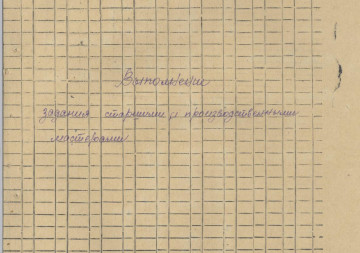 Выполнение
задания старшими и производственными
мастерами